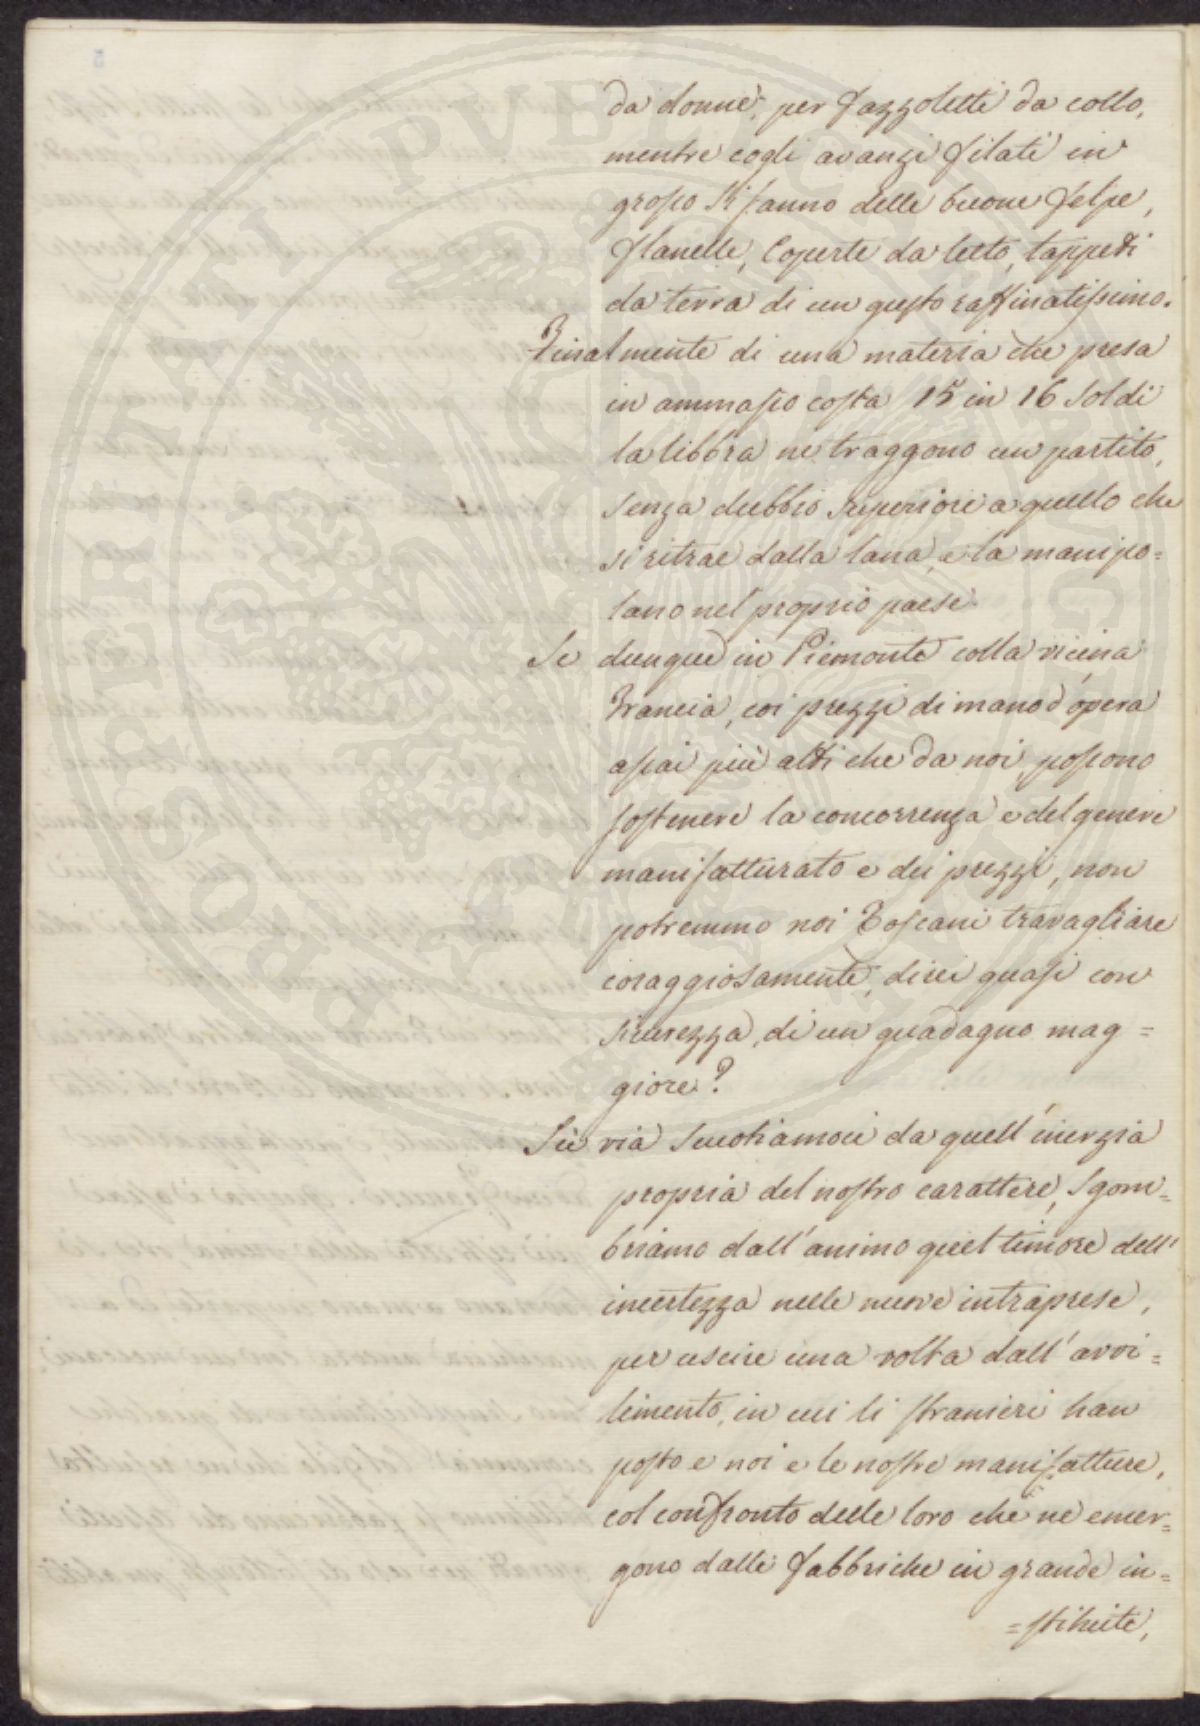 da donne, per fazzoletti da collo,
mentre cogli avanzi filati in
grosso si fanno delle buone felpe,
flanelle, Coperte da letto, tappeti
da terra di un gusto raffinatissimo.
Finalmente di una materia che presa
in ammasso costa 15 in 16 Soldi
la libbra ne traggono un partito,
senza dubbio superiore a quello che
si ritrae dalla lana, e la manipo=
lano nel proprio paese.
Se dunque in Piemonte colla vicina
Francia, coi prezzi di mano d'opera
assai più alti che da noi, possono
sostenere la concorrenza e del genere
manifatturato e dei prezzi, non
potremmo noi Toscani travagliare
coraggiosamente, direi quasi con
sicurezza, di un guadagno mag=
giore?
Sù via scuotiamoci da quell'inerzia
propria del nostro carattere, sgom=
briamo dall'animo quel timore dell'
incertezza nelle nuove intraprese,
per uscire una volta dall'avvi=
limento, in cui li stranieri han
posto e noi e le nostre manifatture,
col confronto delle loro che ne emer=
gono dalle fabbriche in grande in=
=stituite,
PROSPERITATI PVBLICAE